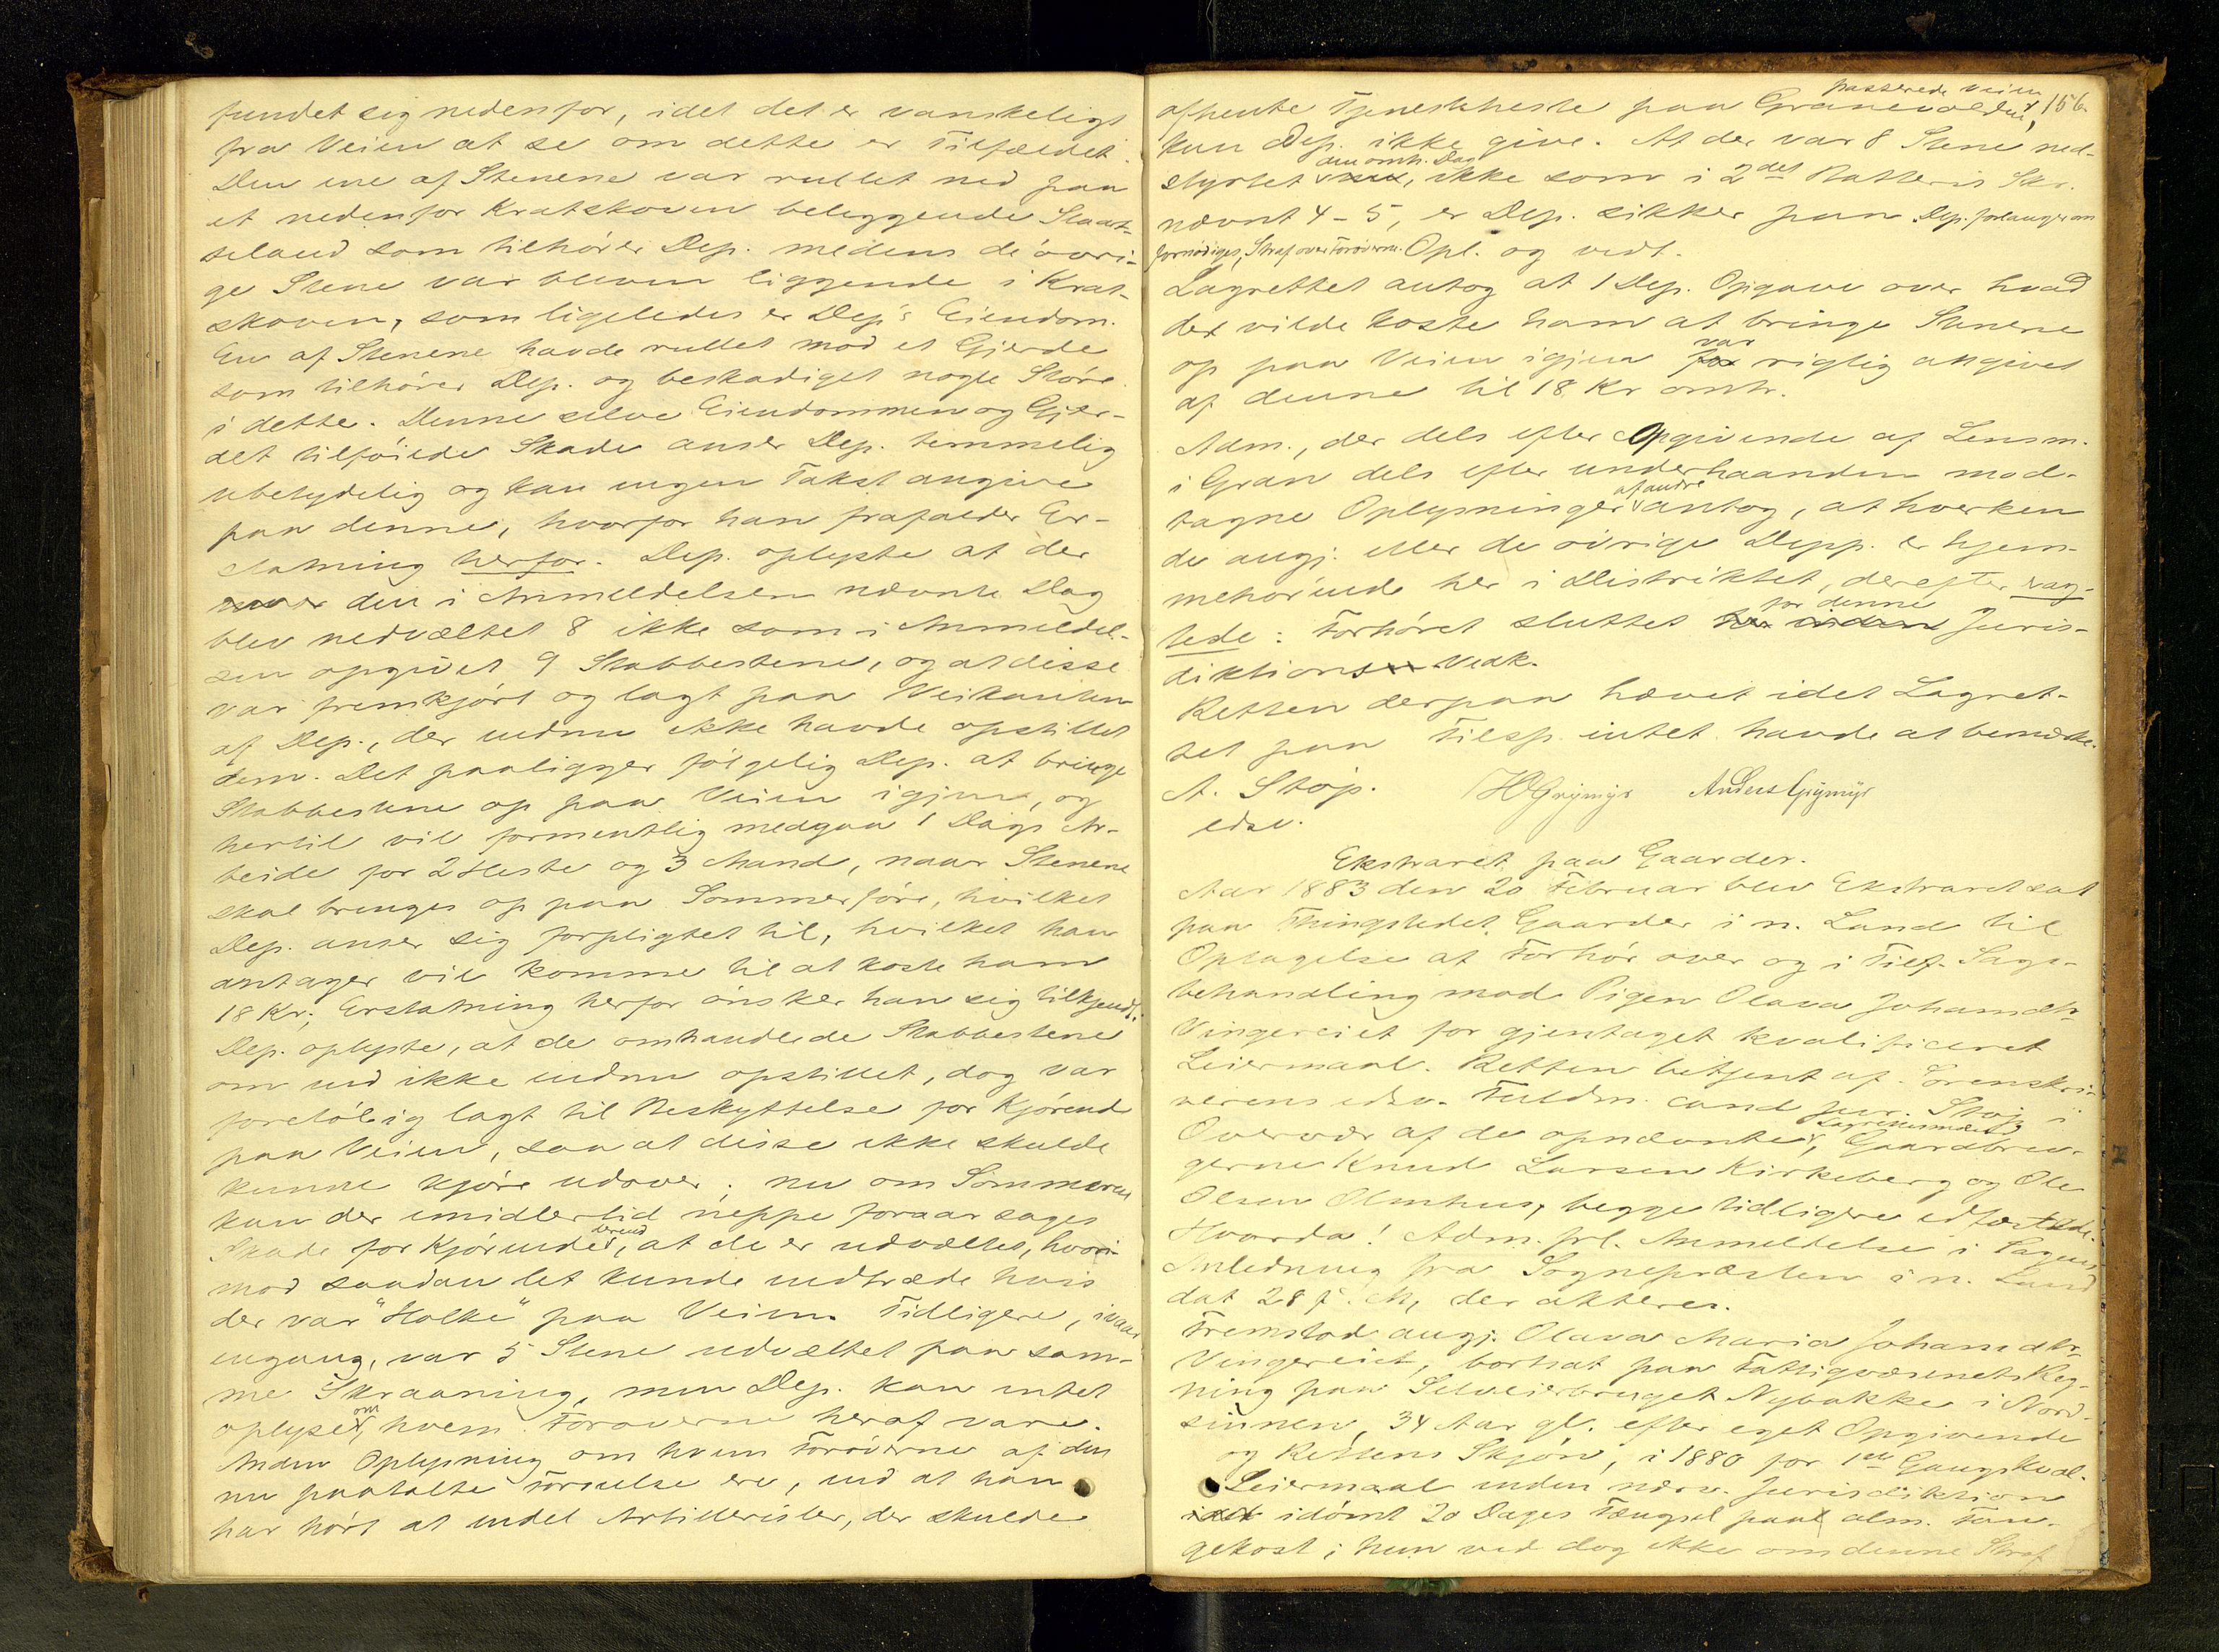 fundet sig nedenfor, idet det er vanskeligt
fra Veien at se om dette er Tilfældet.
Den ene af Stenene var rullet ned paa
et nedenfor Kratskoven beliggende
som tilhører Dep. medens de øvri-
ge Stene var bleven liggende i Krat-
skoven, som ligeledes er Dep's Eiendom.
En af Stenene havde rullet mod et Gjerde
som tilhører Dep. og beskadiget nogle Störe
i dette. Denne selve Eiendommen og Gjer-
det tilföiede Skade anser Dep. temmelig
ubetydelig og kan ingen Takst angive
paa denne, hvorfor han frafalder Er-
statning herfor. Dep. oplyste at der
den i Anmeldelsen nævnte Dag
blev nedvæltet 8 ikke som i Anmeldel-
sen opgivet 9 Stabbestene, og at disse
var fremkjørt og lagt paa Veikanten
af Dep., der endnu ikke havde opstillet
dem. Det paaligger fölgelig Dep. at bringe
Stabbestene op paa Veien igjen, og
hertil vil formentlig medgaa 1 Dags Ar-
beide for 2 Heste og 3 Mand, naar Stenene
skal bringes op paa Sommerföre, hvilket
Dep. anser sig forpligtet til, hvilket han
antager vil komme til at koste ham
18 Kr; Erstatning herfor önsker han sig tilkjendt.
Dep. oplyste, at de omhandlede Stabbestene
om end ikke endnu opstillet, dog var
foreløbig lagt til Beskyttelse for Kjörende
paa Veien, saa at disse ikke skulde
kunne kjöre udover; nu om Sommeren
kan der imidlertid neppe foraarsages
Skade for Kjörende, at de er udvæltet, hvori-
mod saadan let kunde indtræde hvis
der var "Holke" paa Veien. Tidligere, ivaar
engang, var 5 Stene udvæltet paa sam-
me Skraaning, men Dep. kan intet
oplyse om, hvem Foröverne heraf vare.
Anden Oplysning om hvem Foröverne af den
nu paatalte Forøvelse ere, end at han
har hört at endel Artillerister, der skulde
passerede Veien
afhente Tjenestheste paa Granevolden, 156.
kan Dep. ikke give. At der var 8 Stene ned-
den omh. Dag
styrtet, ikke som i 2det Batteris Skr.
nævnt 4-5, er Dep. sikker paa Dep. forlanger om
fornödiges, Straf over Foröverne. Opl. og vedt.
Lagrettet antog at 1 Dep. Opgave over hvad
det vilde koste ham at bringe Stenene
var
op paa Veien igjen for rigtig angivet
af denne til 18 Kr omtr.
Adm., der dels efter Opgivende af Lensm.
i Gran dels efter underhaanden mod-
af andre
tagne Oplysninger antog, at hverken
de angj. eller de øvrige Depp. er hjem-
mehörende her i Distriktet, derefter erag-
for denne
tede: Forhöret sluttet her inden Juris-
diktions Vedk.
Retten derpaa hævet idet Lagret-
tet paa Tilsp. intet havde at bemærke.
A. Støp. HGrymyr Anders Grymyr
edsv.
Ekstraret paa Gaarder.
Aar 1883 den 20 Februar blev Ekstraret sat
paa Thingstedet Gaarder i n. Land til
Optagelse af Forhør over og i Tilf. Sags-
behandling mod Pigen Olava Johannesdtr
Vingereiet for gjentaget kvalificeret
Leiermaal. Retten betjent af Sorenskri-
verens edsv. Fuldm. cand jur. Støp i
Lagrettesmænd
Overvær af de opnævnte, Gaardbru-
gerne Knud Larsen Kirkeberg og Ole
Olsen Olmhus, begge tidligere edfæstede.
Hvorda! Adm. frl. Anmeldelse i Sagens
Anledning fra Sognepræsten i n. Land
dat 28 f. M, der akteres.
Fremstod angj. Olava Maria Johannesdtr
Vingereiet, bortsat paa Fattigvæsenets Reg-
ning paa Selveierbruget Nybakke i Nord-
sinnen, 34 Aar gl. efter eget Opgivende
og Rettens Skjøn, i 1880 for 1ste Gangs kval.
Leiermaal inden nærv. Jurisdiktion
idömt 20 Dages Fængsel paa alm. Fan-
gekost; hun ved dog ikke om denne Straf